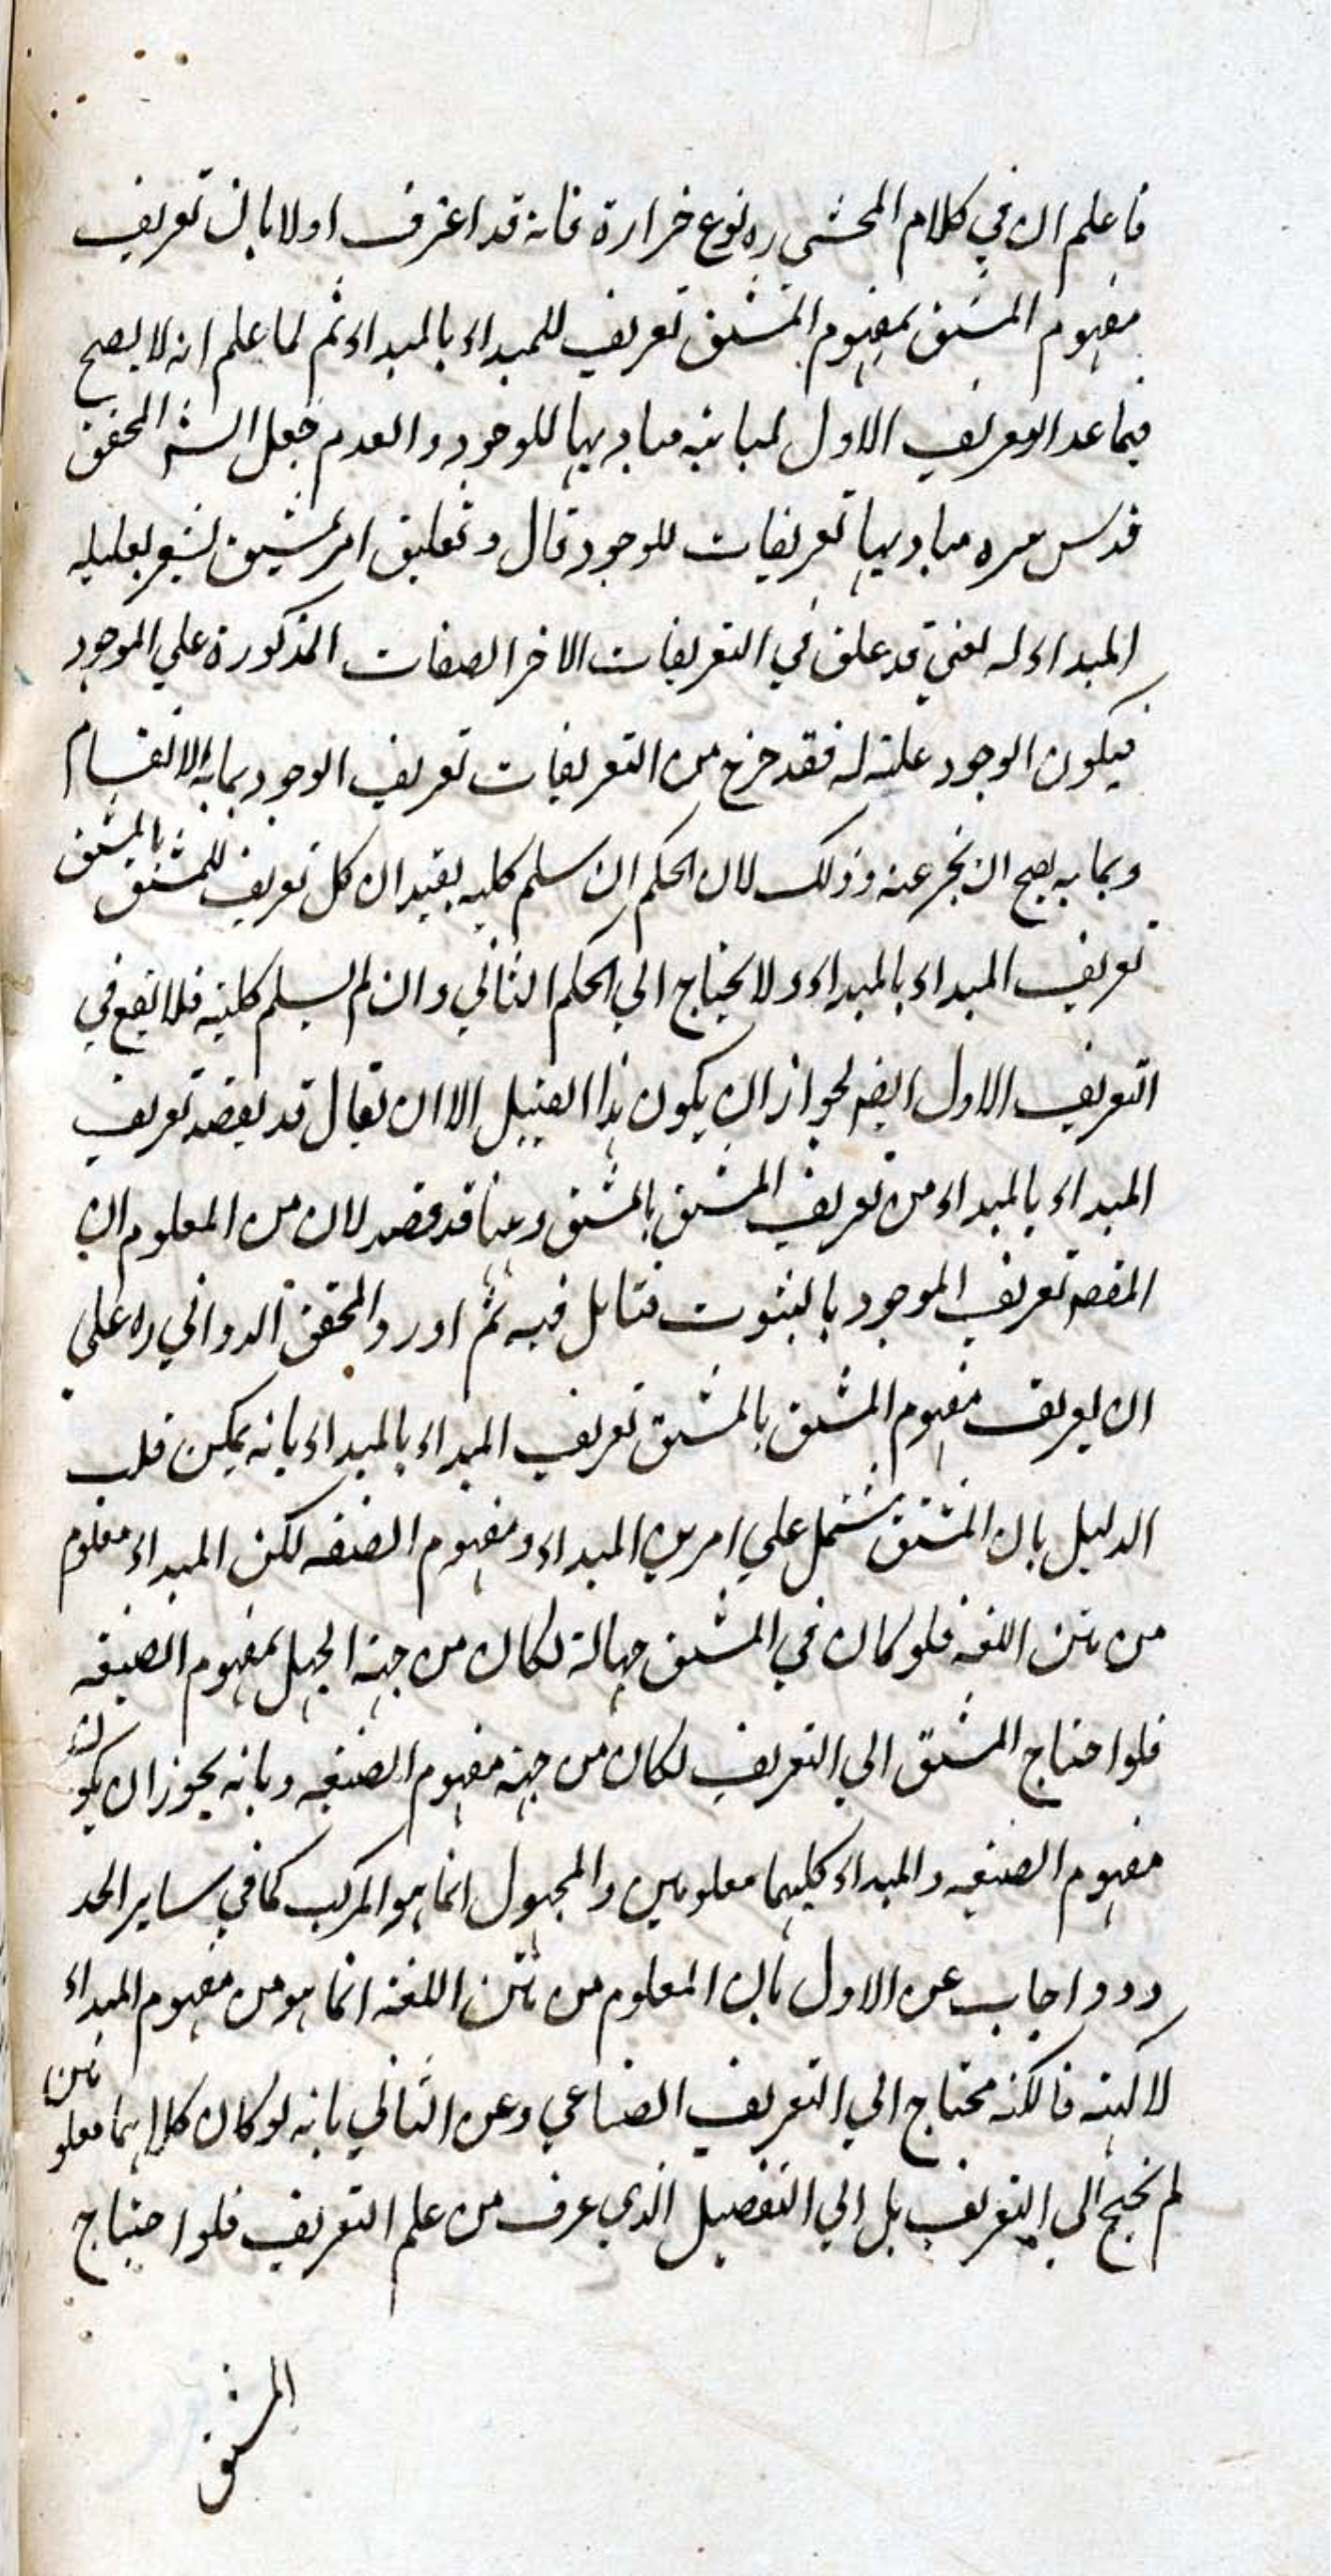 فاعلم ان في كلام المحشي ره نوع خرارة فانه قد اعترف اولا بان تعريف
مفهوم المشتق بمفهوم المشتق تعريف للمبداء بالمبداء ثم لما علم انه لا يصح
فيما عدا التعريف الاول لمباينه مباديها للوجود والعدم جعل الشه المحقق
قدس سره مباديها تعريفات للوجود قال وتعليق امر بمشتق يشعر بعليله
المبداء له يعني قد علق في التعريفات الاخر الصفات المذكورة علي الموجود
فيكون الوجود علته له فقد خرج من التعريفات تعريف الوجود بما به الانقسام
وبما به يصح ان يخبر عنه وذلك لان الحكم ان سلم كليه يفيد ان كل تعريف للمشتق بالمشتق
تعريف المبداء بالمبداء ولا يحتاج الي الحكم الثاني وان لم يسلم كليته فلا ينفع في
التعريف الاول ايضه لجواز ان يكون هذا القبيل الا ان يقال قد يقصد تعريف
المبداء بالمبداء من تعريف المشتق بالمشتق وهنا قد قصد لان من المعلوم ان
المقصه تعريف الموجود بالثبوت فتامل فيه ثم اورد المحقق الدواني ره علي
ان تعريف مفهوم المشتق بالمشتق تعريف المبداء بالمبداء بانه يمكن قلب
الدليل بان المشتق مشتمل علي امرين المبداء ومفهوم الصيغه لكن المبداء معلوم
من متن اللغه فلو كان في المشتق جهالة لكان من جهة الجهل بمفهوم الصيغه
فلو احتاج المشتق الي التعريف لكان من جهة مفهوم الصيغه وبانه يجوز ان يكون
مفهوم الصيغه والمبداء كليهما معلومين والمجهول انما هو المركب كما في ساير الحد
ودو اجاب عن الاول بان المعلوم من متن اللغة انما هو من مفهوم المبداء
لا كنهه فالكنه محتاج الي التعريف الصناعي وعن الثاني بانه لو كان كلاهما معلومين
لم يحتج الي التعريف بل الي التفصيل الذي عرف من علم التعريف فلو احتاج
المشتق